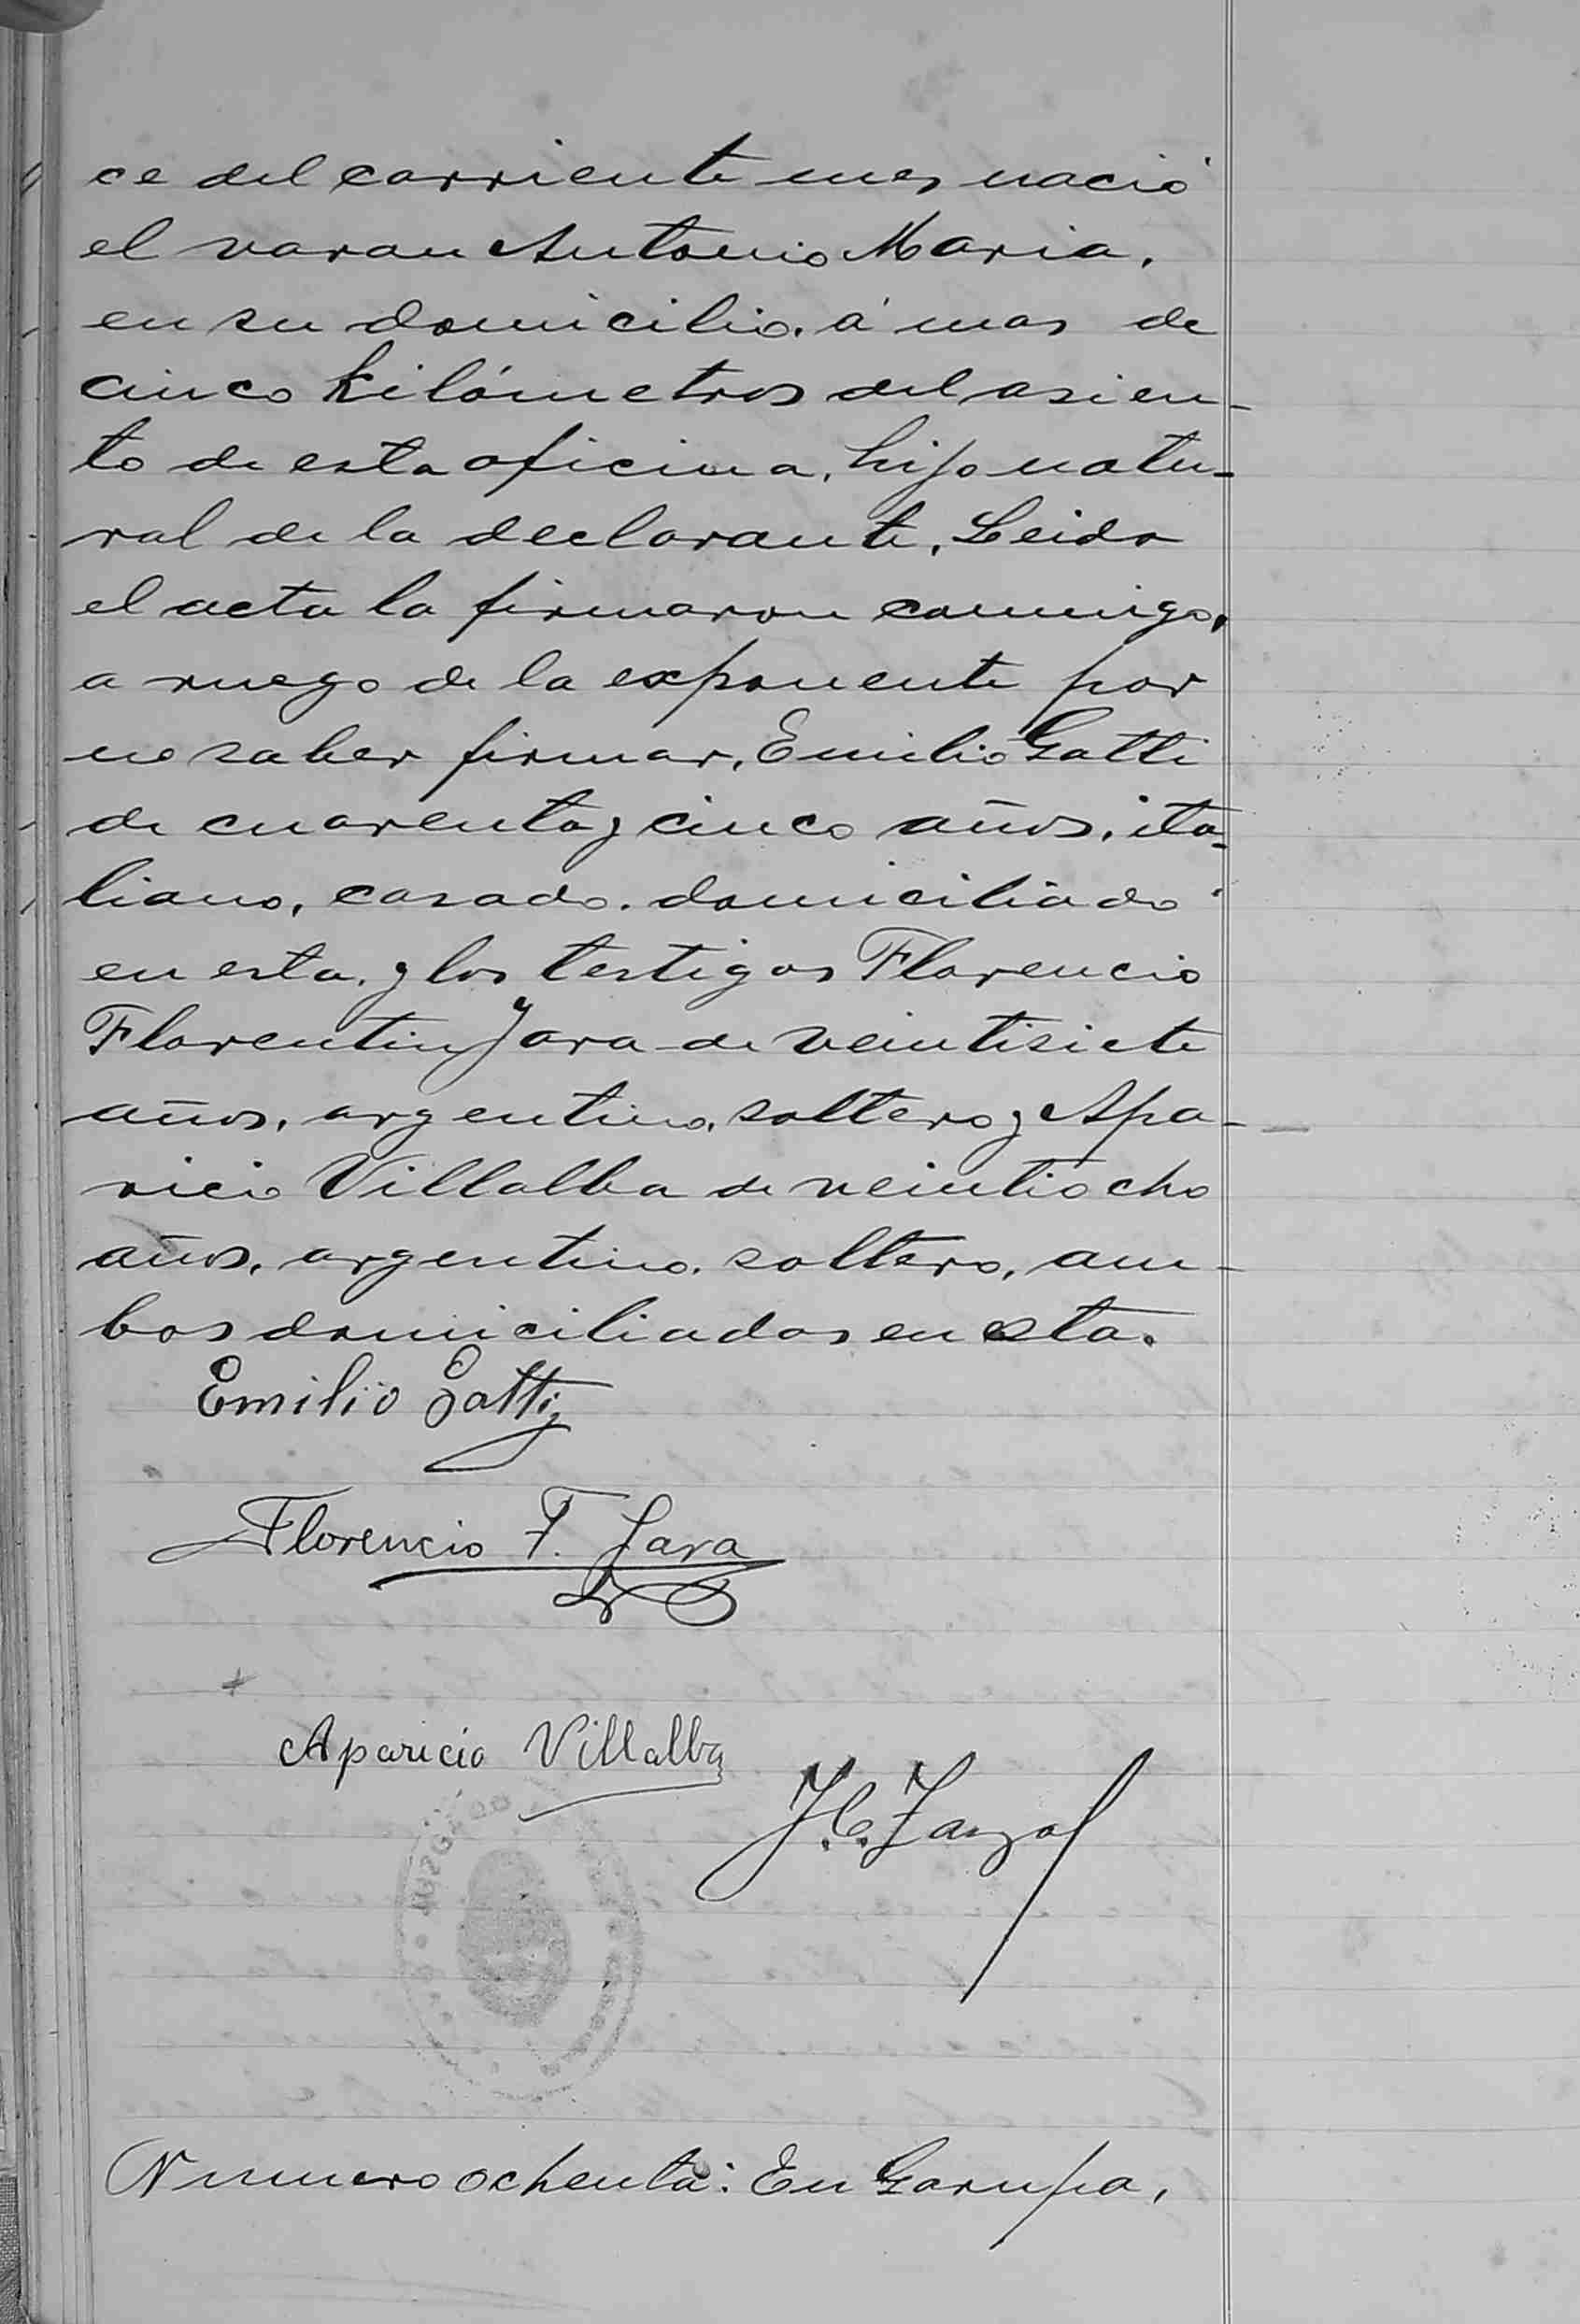 ce del corriente mes nació
el varon Antonio Maria,
en su domicilio, á mas de
cinco kilómetros del asien-
to de esta oficina, hijo natu-
ral de la declarante, Leida
el acta la firmaron conmigo,
a ruego de la exponente por
no saber firmar, Emilio Gatti
de cuarenta y cinco años, ita-
liano, casado, domiciliado
en esta, y los testigos Florencio
Florentin Jara de veintisiete
años, argentino, soltero y Apa-
ricio Villalba de veintiocho
años, argentino, soltero, am-
bos domiciliados en esta.
Emilio Gatti
Florencio F. Jara
Aparicio Villalba
J. C.
JUZGADO
Numero ochenta: En Garupa,